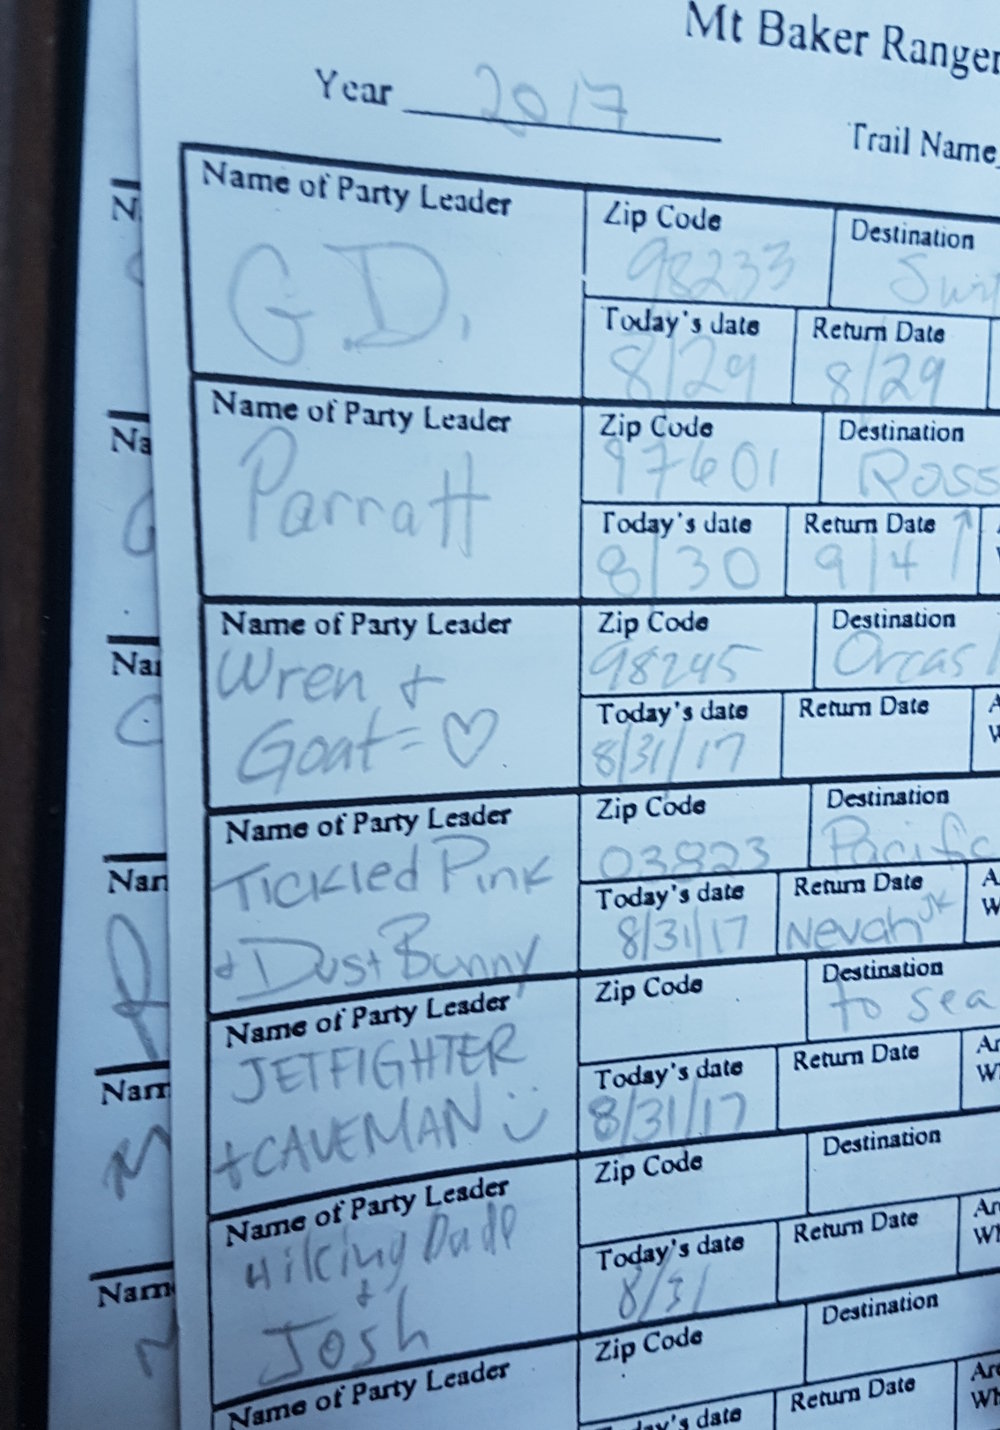 Mt Baker Ranger
Year 2017
Trail Name
Name of Party Leader
G.D.
Zip Code
98233
Destination
Today's date
8/29
Return Date
8/29
Name of Party Leader
Parratt
Zip Code
97601
Destination
Ross
Today's date
8/30
Return Date
9/4
Name of Party Leader
Wren +
Goat = ♡
Zip Code
98245
Destination
Orcas
Today's date
8/31/17
Return Date
Name of Party Leader
Tickled Pink
+ Dust Bunny
Zip Code
03823
Destination
Pacific
Today's date
8/31/17
Return Date
Nevah JK
Name of Party Leader
JETFIGHTER
+ CAVEMAN :)
Zip Code
Destination
to sea
Today's date
8/31/17
Return Date
Name of Party Leader
Hiking Dude
+
Josh
Zip Code
Destination
Today's date
8/31
Return Date
Name of Party Leader
Zip Code
Destination
Today's date
Return Date